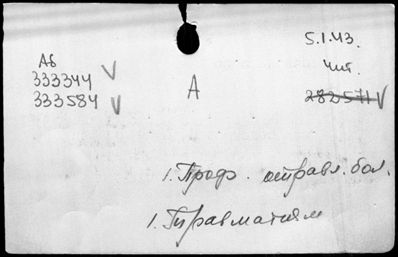 5.I.43.
Аб
чит.
333344 V
333584 V
А
282571 V
1. Проф. отравл. бол.
1. Травматизм